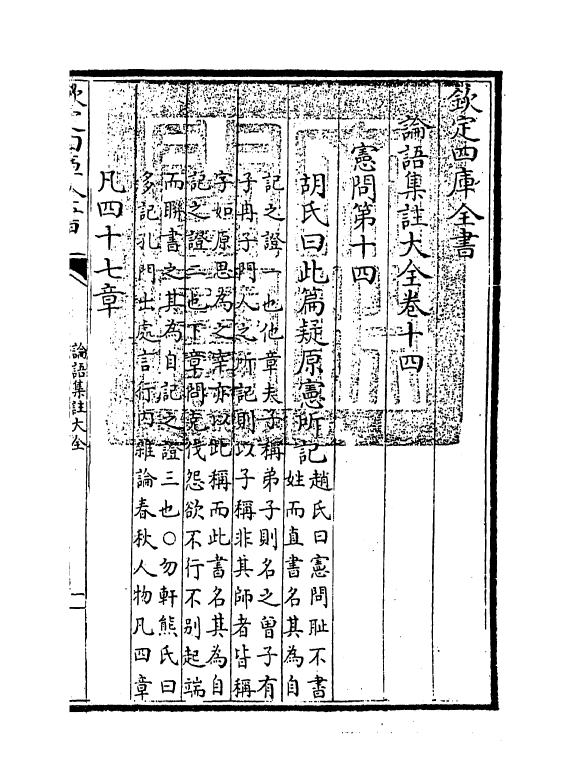 欽定四庫全書
論語集註大全卷十四
憲問第十四
胡氏曰此篇疑原憲所記
趙氏曰憲問耻不書
姓而直書名其為自
記之證一也他章夫子稱弟子則名之曾子有
子冉子門人之所記則以子稱非其師者皆稱
字如原思為之宰亦以此稱而此書名其為自
記之證二也下章問克伐怨欲不行不别起端
而聯書之其為自記之證三也○勿軒熊氏曰
多記孔門出處言行内雜論春秋人物凡四章
凡四十七章
論語集註大全